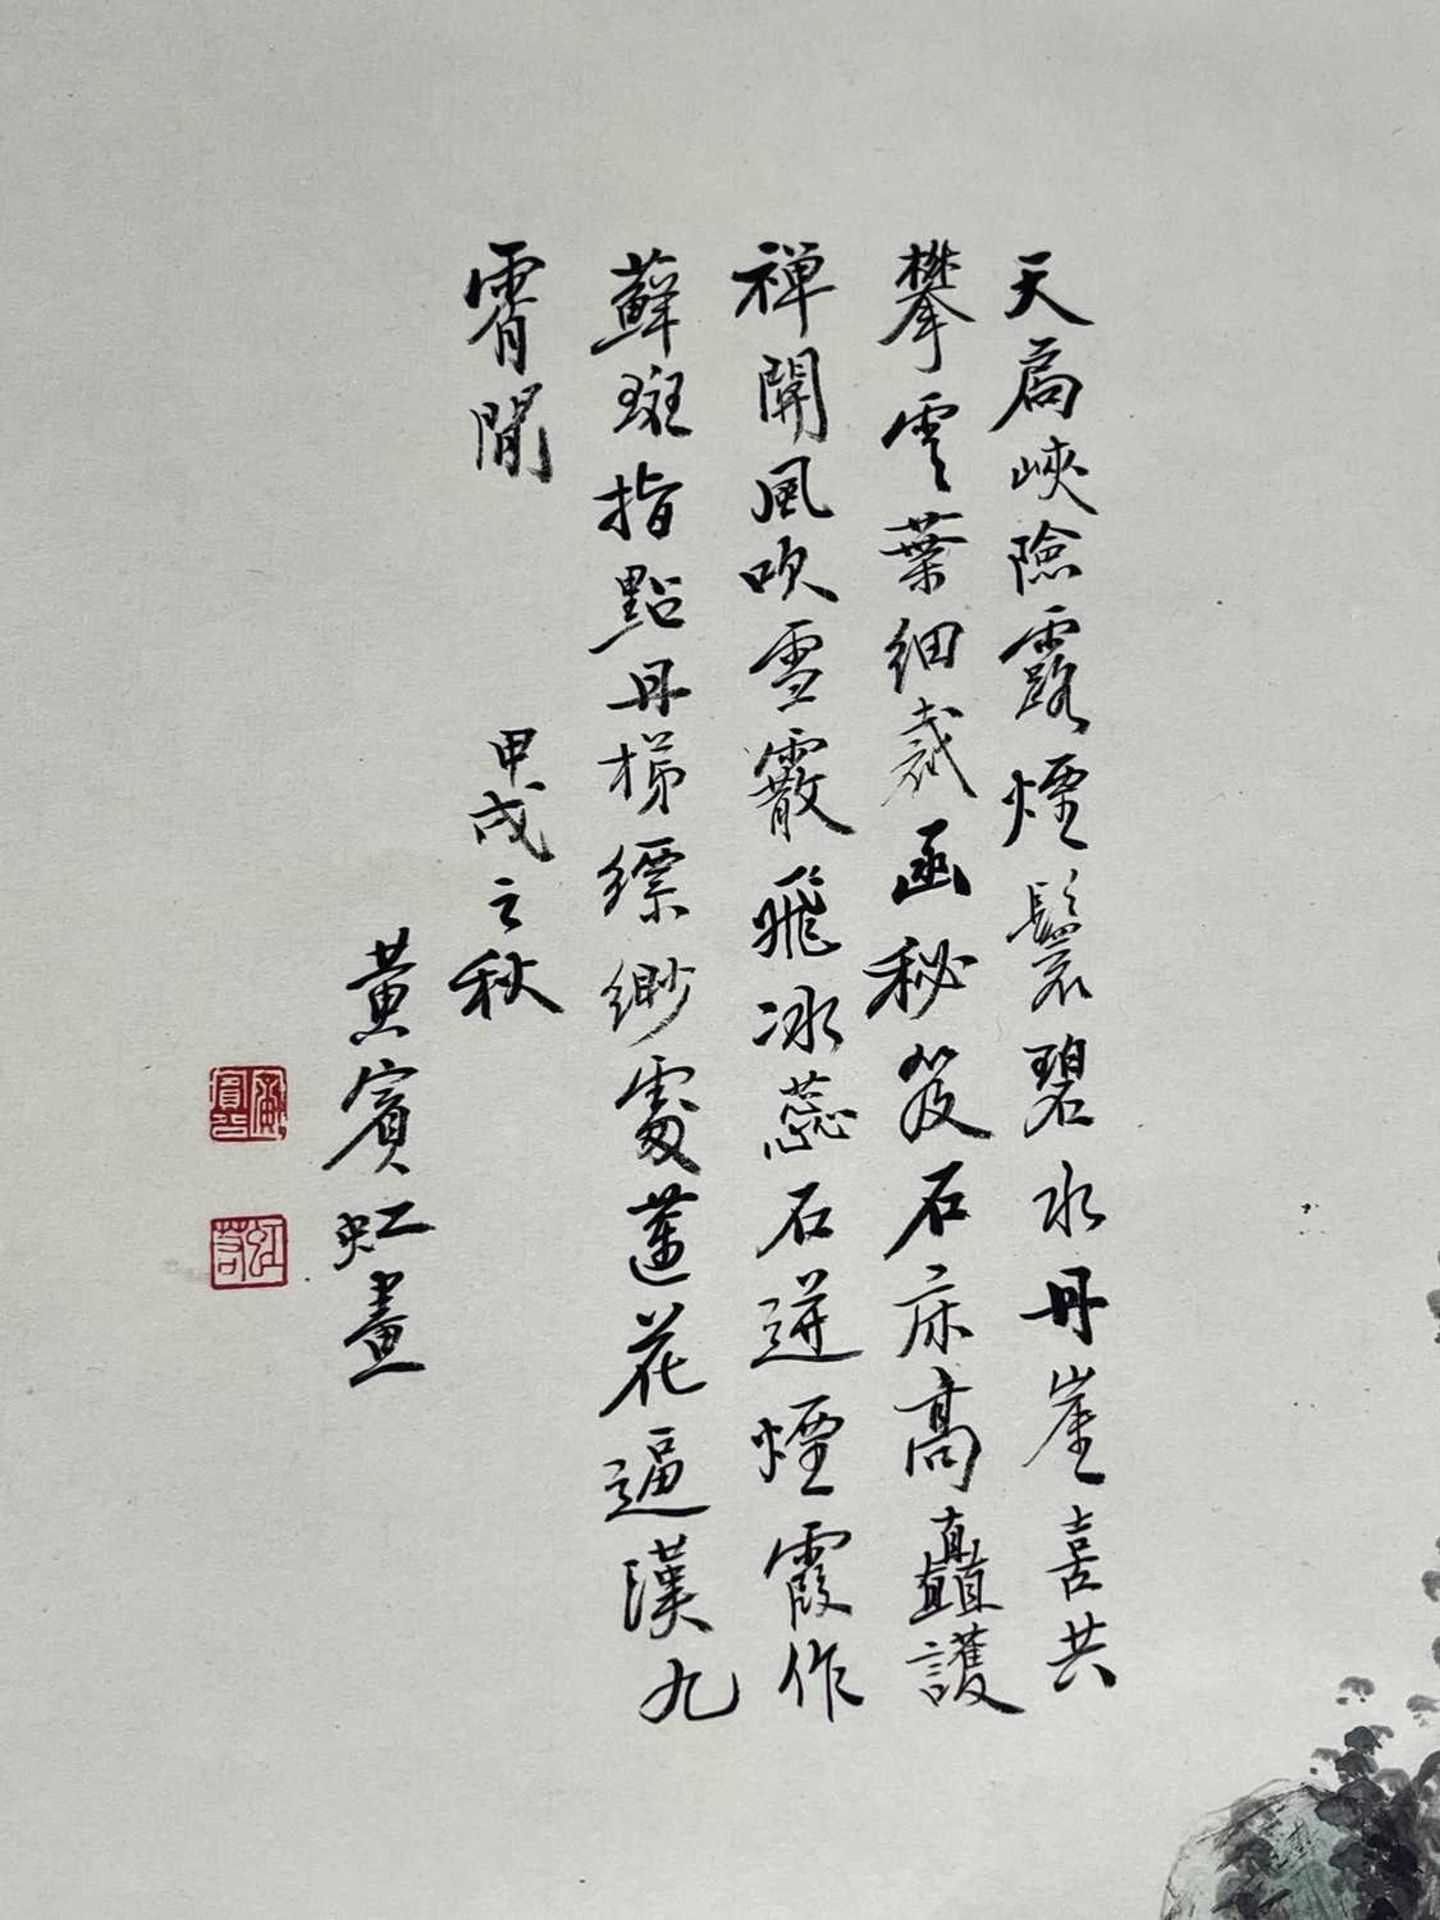 天扃峽險露煙鬟碧水丹崖喜共
攀雲葉細裁函秘笈石床高矗護
禅關風吹雪霰飛冰蕊石迸煙霞作
蘚斑指點丹梯縹緲處蓮花逼漢九
霄間
甲戌之秋
黃賓虹畫